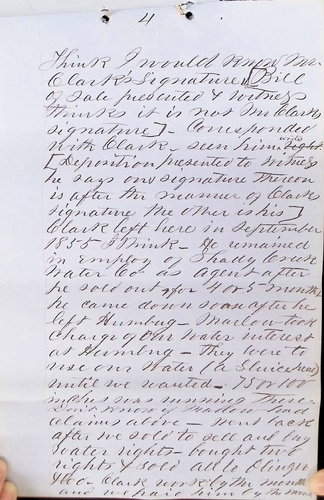 4
Think I would know Mr.
Clark's Signature [Bill
of Sale presented & witness
thinks it is not Mr Clarks
signature] - Corresponded
with Clark - seen him write
[Deposition presented to witness
he says one signature thereon
is after the manner of Clark
signature the other is his]
Clark left here in September
1855 I think - He remained
in employ of Shady Creek
Water Co as agent after
he sold out, for 4 or 5 months
he came down soon after he
left Humbug - Marlow took
charge of our water interest
at Humbug - They were to
use our Water (a Sluice head)
until we wanted - 75 or 100
inches was running there
Dont know if Marlow had
claims above - Went back
after we sold to sell and buy
Water rights - bought two
rights & sold all to
& Co - Clark work by the month
and we paid him by the month